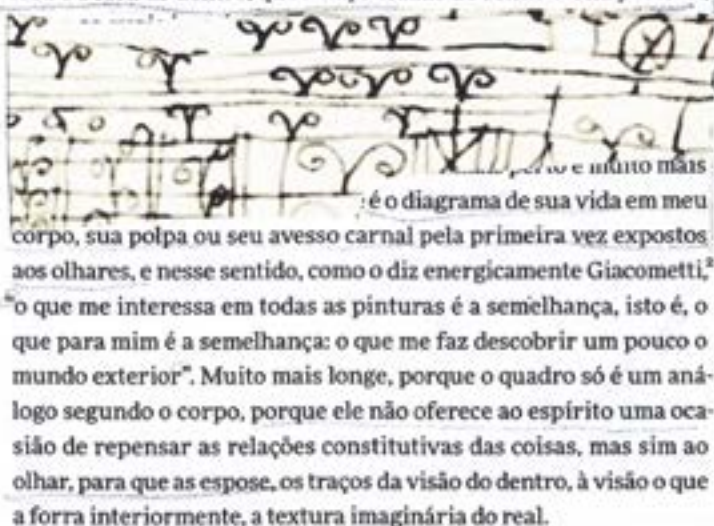 muito mais
é o diagrama de sua vida em meu
corpo, sua polpa ou seu avesso carnal pela primeira vez expostos
aos olhares, e nesse sentido, como o diz energicamente Giacometti,²
"o que me interessa em todas as pinturas é a semelhança, isto é, o
que para mim é a semelhança: o que me faz descobrir um pouco o
mundo exterior". Muito mais longe, porque o quadro só é um aná-
logo segundo o corpo, porque ele não oferece ao espírito uma oca-
sião de repensar as relações constitutivas das coisas, mas sim ao
olhar, para que as espose, os traços da visão do dentro, à visão o que
a forra interiormente, a textura imaginária do real.